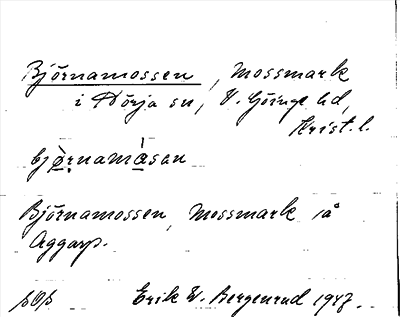 Björnamossen, Mossmark
i Nörja sn, V. Göinge hd,
Krist. l.
bjö̀rnamǻsan
Björnamossen, Mossmark på
Aggarp.
Erik W. Bergenrud 1947.